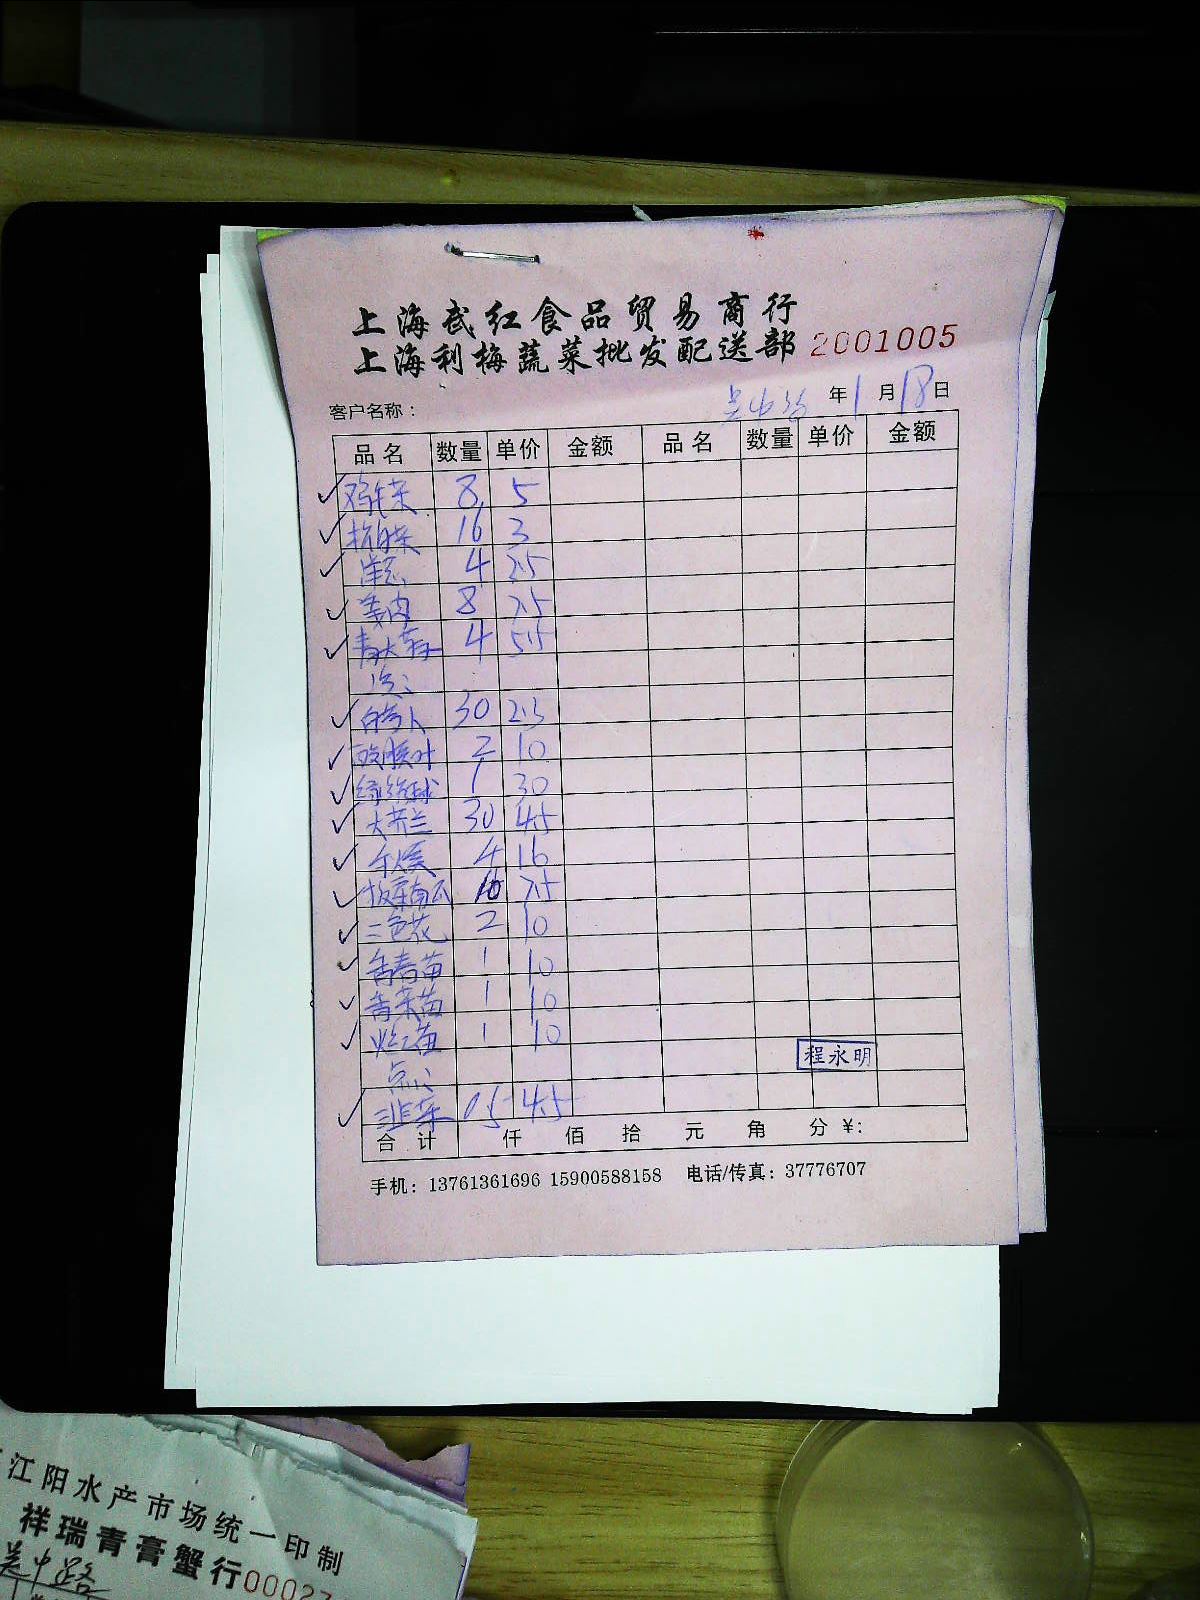 上海武红食品贸易商行
上海利梅蔬菜批发配送部 2001005
客户名称： 吴中路 年 1 月 18 日
品名 数量 单价 金额 品名 数量 单价 金额
鸡毛菜 8 5
杭白菜 16 3
洋葱 4 2.5
姜肉 8 7.5
青大 4 5.5
白萝卜 30 2.3
2 10
1 30
大芥兰 30 4.5
4 16
板栗南瓜 10 7.5
三色花 2 10
香春苗 1 10
青菜苗 1 10
苗 1 10
程永明
点心
韭菜 0.5 4.5
合计 仟 佰 拾 元 角 分 ￥:
手机：13761361696 15900588158 电话/传真：37776707
江阳水产市场统一印制
祥瑞青膏蟹行 00027
吴中路